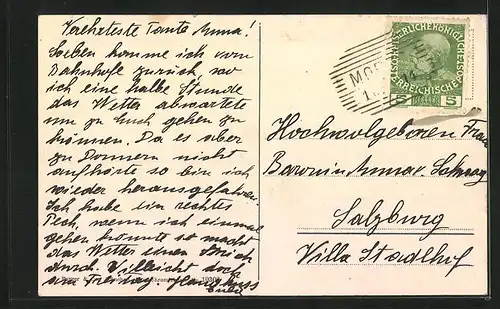 Verehrteste Tante Anna!
Soeben komme ich vom
Bahnhofe zurück wo
ich eine halbe Stunde
das Wetter abwartete
um zu Euch gehen zu
können. Da es aber
zu Donnern nicht
aufhörte so bin ich
wieder herausgefahren.
Ich habe ein rechtes
Pech, wenn ich einmal
gehen könnte so macht
das Wetter einen Strich
durch. Vielleicht doch
am Freitag. Handkuss
KÖNIGL
ÖSTERREICHISCHE POST
5 5
MO
Hochwolgeboren Frau
Baronin Anna v.
Salzburg
Villa Stadlhof